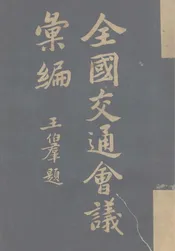 全國交通會議
彙編
王伯羣題